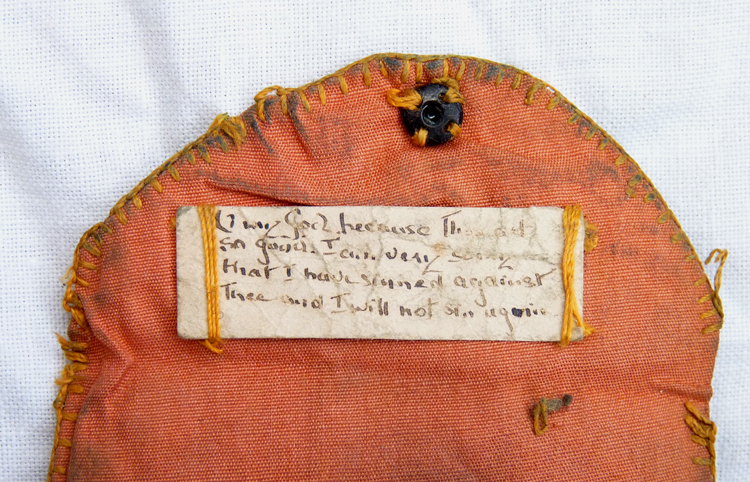 O my God, because Thou art
so good, I am very sorry
that I have sinned against
Thee and I will not sin again